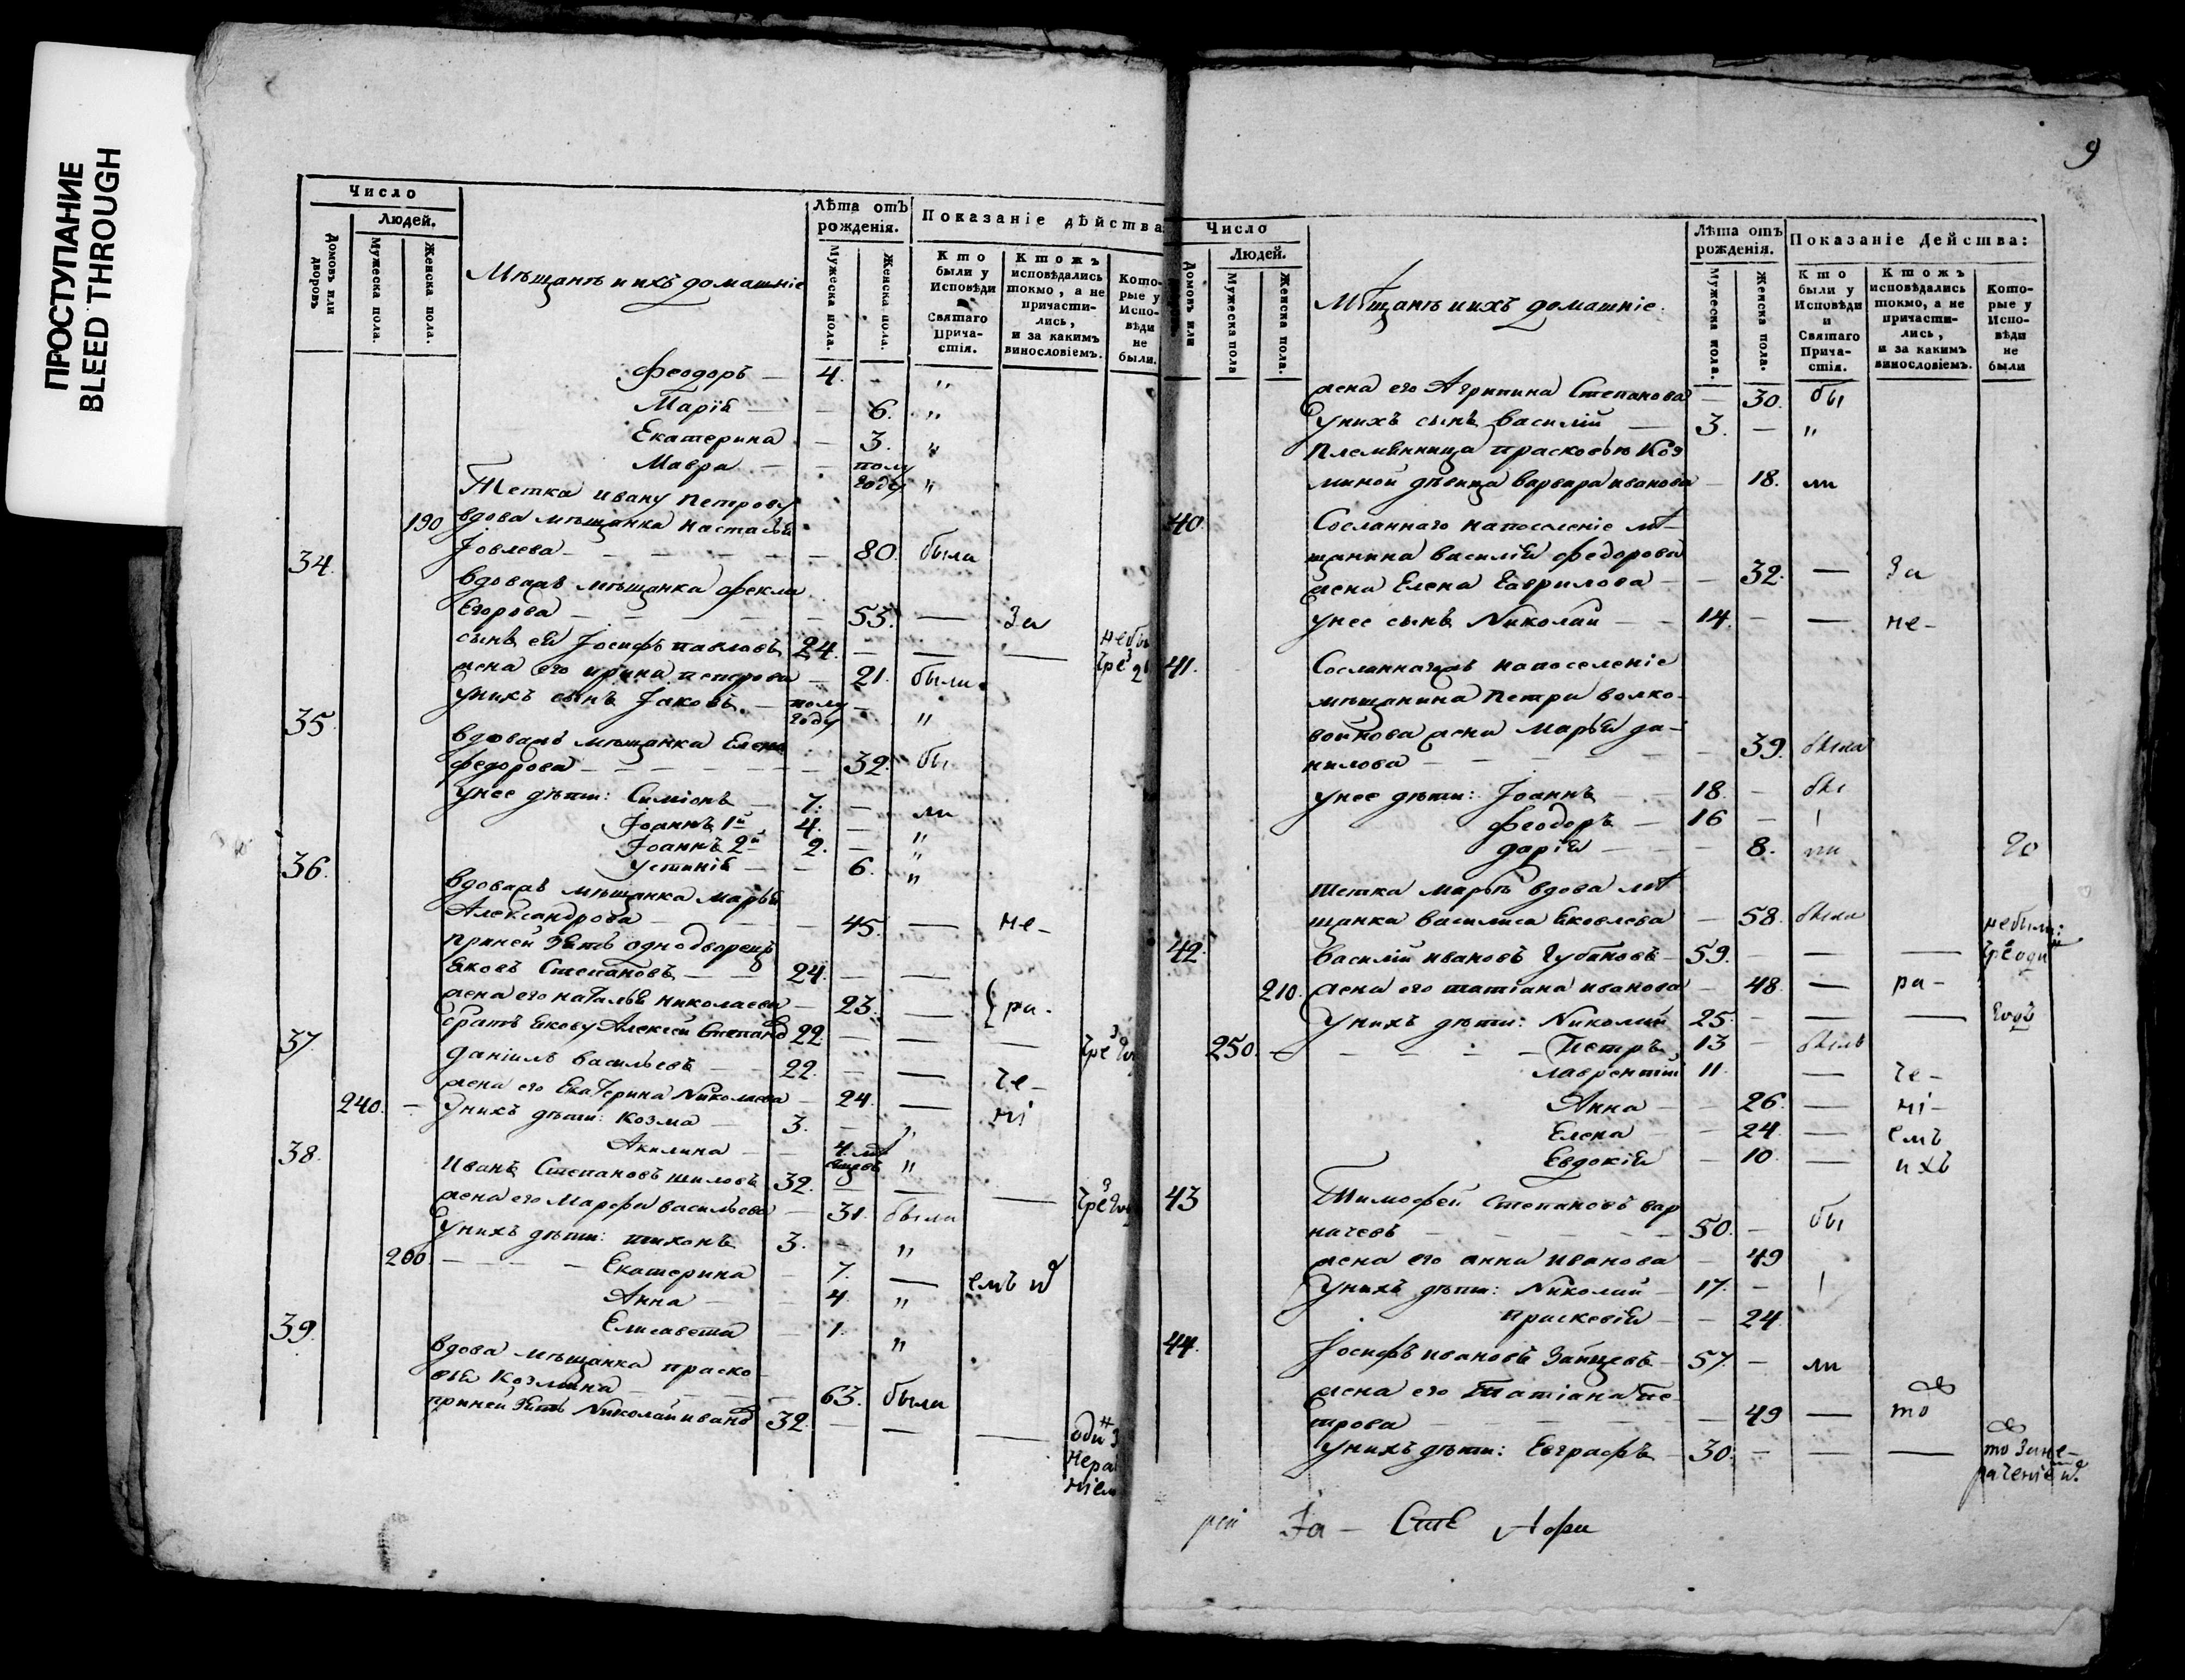 ПРОСТУПАНИЕ
BLEED THROUGH
Число
Людей.
Домовъ или дворовъ
Мужеска пола.
Женска пола.
Мѣщанъ и ихъ домашніе
Лѣта отъ рожденія.
Мужеска пола.
Женска пола.
Показаніе дѣйства
Кто были у Исповѣди и Святаго Причастія.
Ктожъ исповѣдались токмо, а не причастились, и за какимъ винословіемъ.
Которые у Исповѣди не были.
Феодоръ — 4. - "
Марія — - 6. "
Екатерина - 3. "
Мавра — - полу году "
Тетка Ивану Петрову
190 вдова мѣщанка Настасья
Іовлева — 80. была
34. Вдова мѣщанка Фекла
Егорова — 55. — За
сынъ ея Іосифъ Павловъ 24. — — —
жена его Ирина Петрова — 21. были
У нихъ сынъ Іаковъ. — полу году - "
35. Вдова мѣщанка Елена
Федорова — 32. бы
У нее дѣти: Симіонъ — 7. — ли
Іоаннъ 1й 4. — "
Іоаннъ 2й 2. — "
Устинія — - 6. "
36. Вдова мѣщанка Марья
Александрова — 45. — не-
При ней зять однодворецъ
Яковъ Степановъ — 24. — —
жена его Наталья Николаева — 23. — ра-
братъ Якову Алексей Степанов 22. — — —
37. Даніилъ Васильевъ — 22. — — че-
жена его Екатерина Николаева — 24. — ні
240. — У нихъ дѣти: Козма — 3. — "
Акилина — - 4. мѣсяцовъ "
38. Иванъ Степановъ Шиловъ 32. — — —
жена его Марфа Васильева — 31. были
У нихъ дѣти: Тихонъ 3. — "
200. — Екатерина - 7. — емъ
Анна — - 4. "
Елисавета - 1. "
39. Вдова мѣщанка Праско-
вья Козмина — 63. была
При ней зять Николай Иванов 32. — — —
9
Число
Людей.
Домовъ или
Мужеска пола
Женска пола.
Мѣщанъ и ихъ домашніе.
Лѣта отъ рожденія.
Мужеска пола.
Женска пола.
Показаніе Действа:
Кто были у Исповѣди и Святаго Причастія.
Ктожъ исповѣдались токмо, а не причастились, и за какимъ винословіемъ.
Которые у Исповѣди не были
жена его Агрипина Степанова — 30. бы
У нихъ сынъ Василій — 3. — "
Племянница Прасковью Коз
миной дѣвица Варвара Иванова — 18. ли
40. Сосланнаго на поселеніе мѣ-
щанина Василія Федорова
жена Елена Гаврилова — — 32. — За
У нее сынъ Николай — — 14. — — не-
41. Сосланнаго на поселеніе
мѣщанина Петра Волко-
войнова жена Марья Да-
нилова — 39. была
У нее дѣти: Іоаннъ — — 18. — бы
Феодоръ — 16 —
Дарія — — 8. ли го
Тетка Марьѣ вдова мѣ
щанка Василиса Яковлева — 58. была
42. Василій Ивановъ Губановъ — 59. — — — небыли:
210. жена его Татіана Иванова — 48. — ра-
У нихъ дѣти: Николай 25. — — — годъ
250. — Петръ 13 — былъ
Лаврентій 11. — че-
Анна — - 26. — ні-
Елена — - 24. — емъ
Евдокія — 10. — ихъ
43 Тимофей Степановъ Вар
начевъ — 50. — бы
жена его Анна Иванова — 49
У нихъ дѣти: Николай — 17. —
Праскевія — - 24.
44. Іосифъ Ивановъ Зайцевъ — 57. — ли
жена его Татіана Пе-
трова — 49 — то
У нихъ дѣти: Евграфъ — 30. — — — то за не-
раченіе
рей Іа — Сте Афа